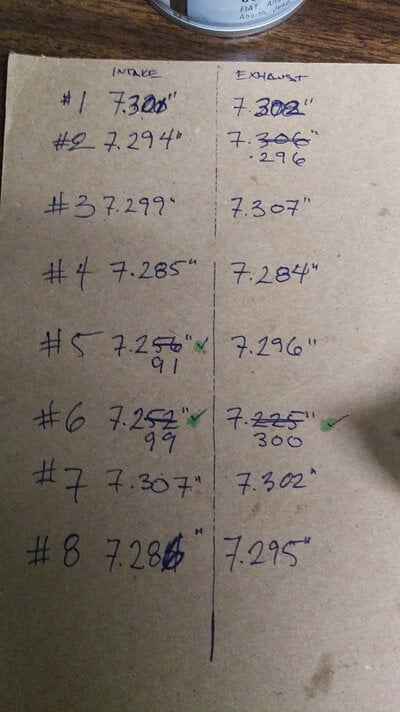 FIAT, Alfa
Abarth, Jeep,
INTAKE EXHAUST
#1 7.301" 7.302"
#2 7.294" 7.306"
.296
#3 7.299" 7.307"
#4 7.285" 7.284"
#5 7.256" ✓ 7.296"
91
#6 7.252" ✓ 7.225" ✓
99 300
#7 7.307" 7.302"
#8 7.286" 7.295"